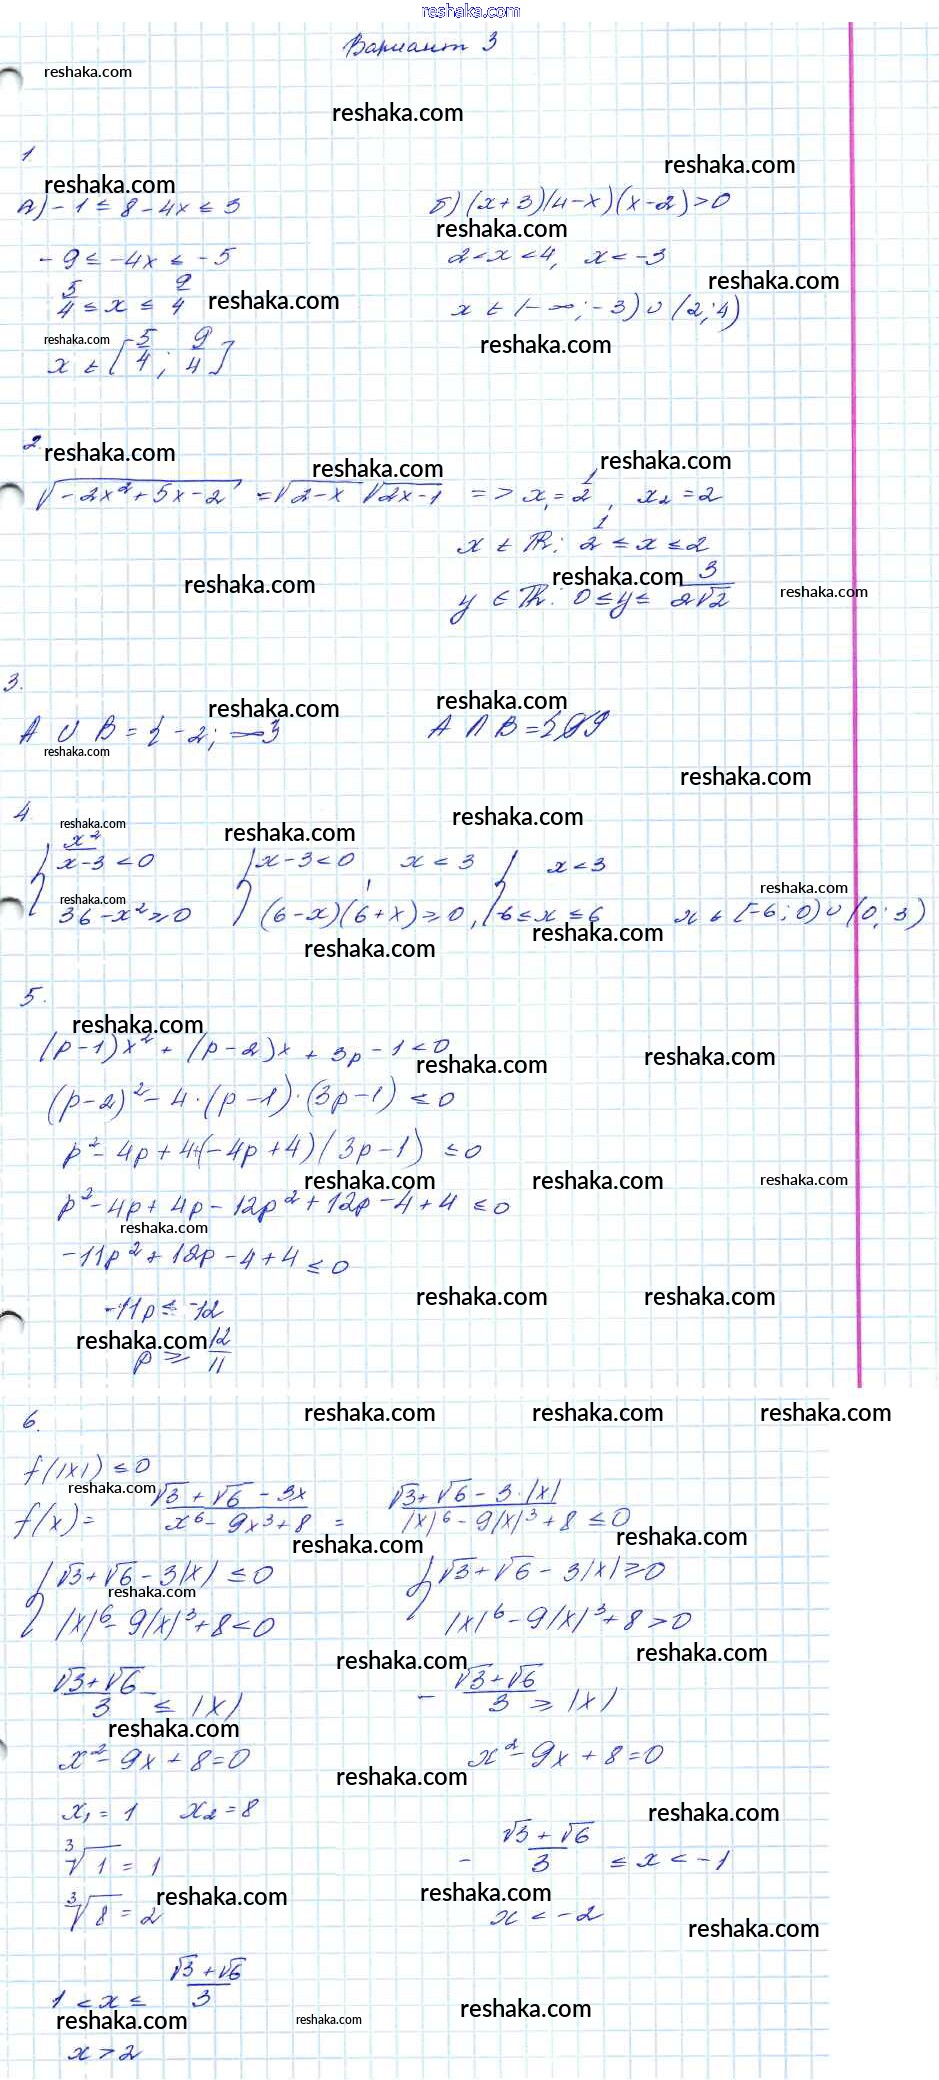 reshaka.com
Вариант 3
reshaka.com
reshaka.com
1.
reshaka.com
reshaka.com
а) -1 ≤ 8 - 4x ≤ 3
б) (x+3)(4-x)(x-2) > 0
reshaka.com
-9 ≤ -4x ≤ -5
2 < x < 4, x < -3
reshaka.com
5/4 ≤ x ≤ 9/4
reshaka.com
x ∈ (-∞; -3) ∪ (2; 4)
reshaka.com
x ∈ [5/4; 9/4]
reshaka.com
2.
reshaka.com
reshaka.com
reshaka.com
√(-2x²+5x-2) = √(2-x) √(2x-1) => x₁ = 1/2, x₂ = 2
x ∈ ℝ: 1/2 ≤ x ≤ 2
reshaka.com
reshaka.com
reshaka.com
y ∈ ℝ: 0 ≤ y ≤ 3/(2√2)
3.
reshaka.com
reshaka.com
A ∪ B = {-2; ∞}
A ∩ B =
reshaka.com
reshaka.com
4.
reshaka.com
reshaka.com
reshaka.com
{ x²/(x-3) < 0
{ x-3 < 0, x < 3
{ x < 3
reshaka.com
reshaka.com
36-x² ≥ 0
(6-x)(6+x) ≥ 0,
-6 ≤ x ≤ 6
x ∈ [-6; 0) ∪ (0; 3)
reshaka.com
reshaka.com
5.
reshaka.com
(p-1)x² + (p-2)x + 3p - 1 < 0
reshaka.com
reshaka.com
(p-2)² - 4·(p-1)·(3p-1) ≤ 0
p² - 4p + 4+(-4p+4)(3p-1) ≤ 0
reshaka.com
reshaka.com
reshaka.com
p² - 4p + 4p - 12p² + 12p - 4 + 4 ≤ 0
reshaka.com
-11p² + 12p - 4 + 4 ≤ 0
reshaka.com
reshaka.com
-11p ≤ -12
reshaka.com
p ≥ 12/11
reshaka.com
reshaka.com
reshaka.com
6.
f(|x|) ≤ 0
reshaka.com
f(x) = (√3 + √6 - 3x)/(x⁶ - 9x³ + 8) = (√3 + √6 - 3·|x|)/(|x|⁶ - 9|x|³ + 8) ≤ 0
reshaka.com
reshaka.com
{ √3 + √6 - 3|x| ≤ 0
{ √3 + √6 - 3|x| ≥ 0
reshaka.com
|x|⁶ - 9|x|³ + 8 < 0
|x|⁶ - 9|x|³ + 8 > 0
reshaka.com
reshaka.com
(√3+√6)/3 ≤ |x|
- (√3+√6)/3 ≥ |x|
reshaka.com
x² - 9x + 8 = 0
x² - 9x + 8 = 0
reshaka.com
x₁ = 1 x₂ = 8
reshaka.com
∛1 = 1
- (√3+√6)/3 ≤ x < -1
reshaka.com
reshaka.com
∛8 = 2
x < -2
reshaka.com
1 < x ≤ (√3+√6)/3
reshaka.com
reshaka.com
reshaka.com
x > 2